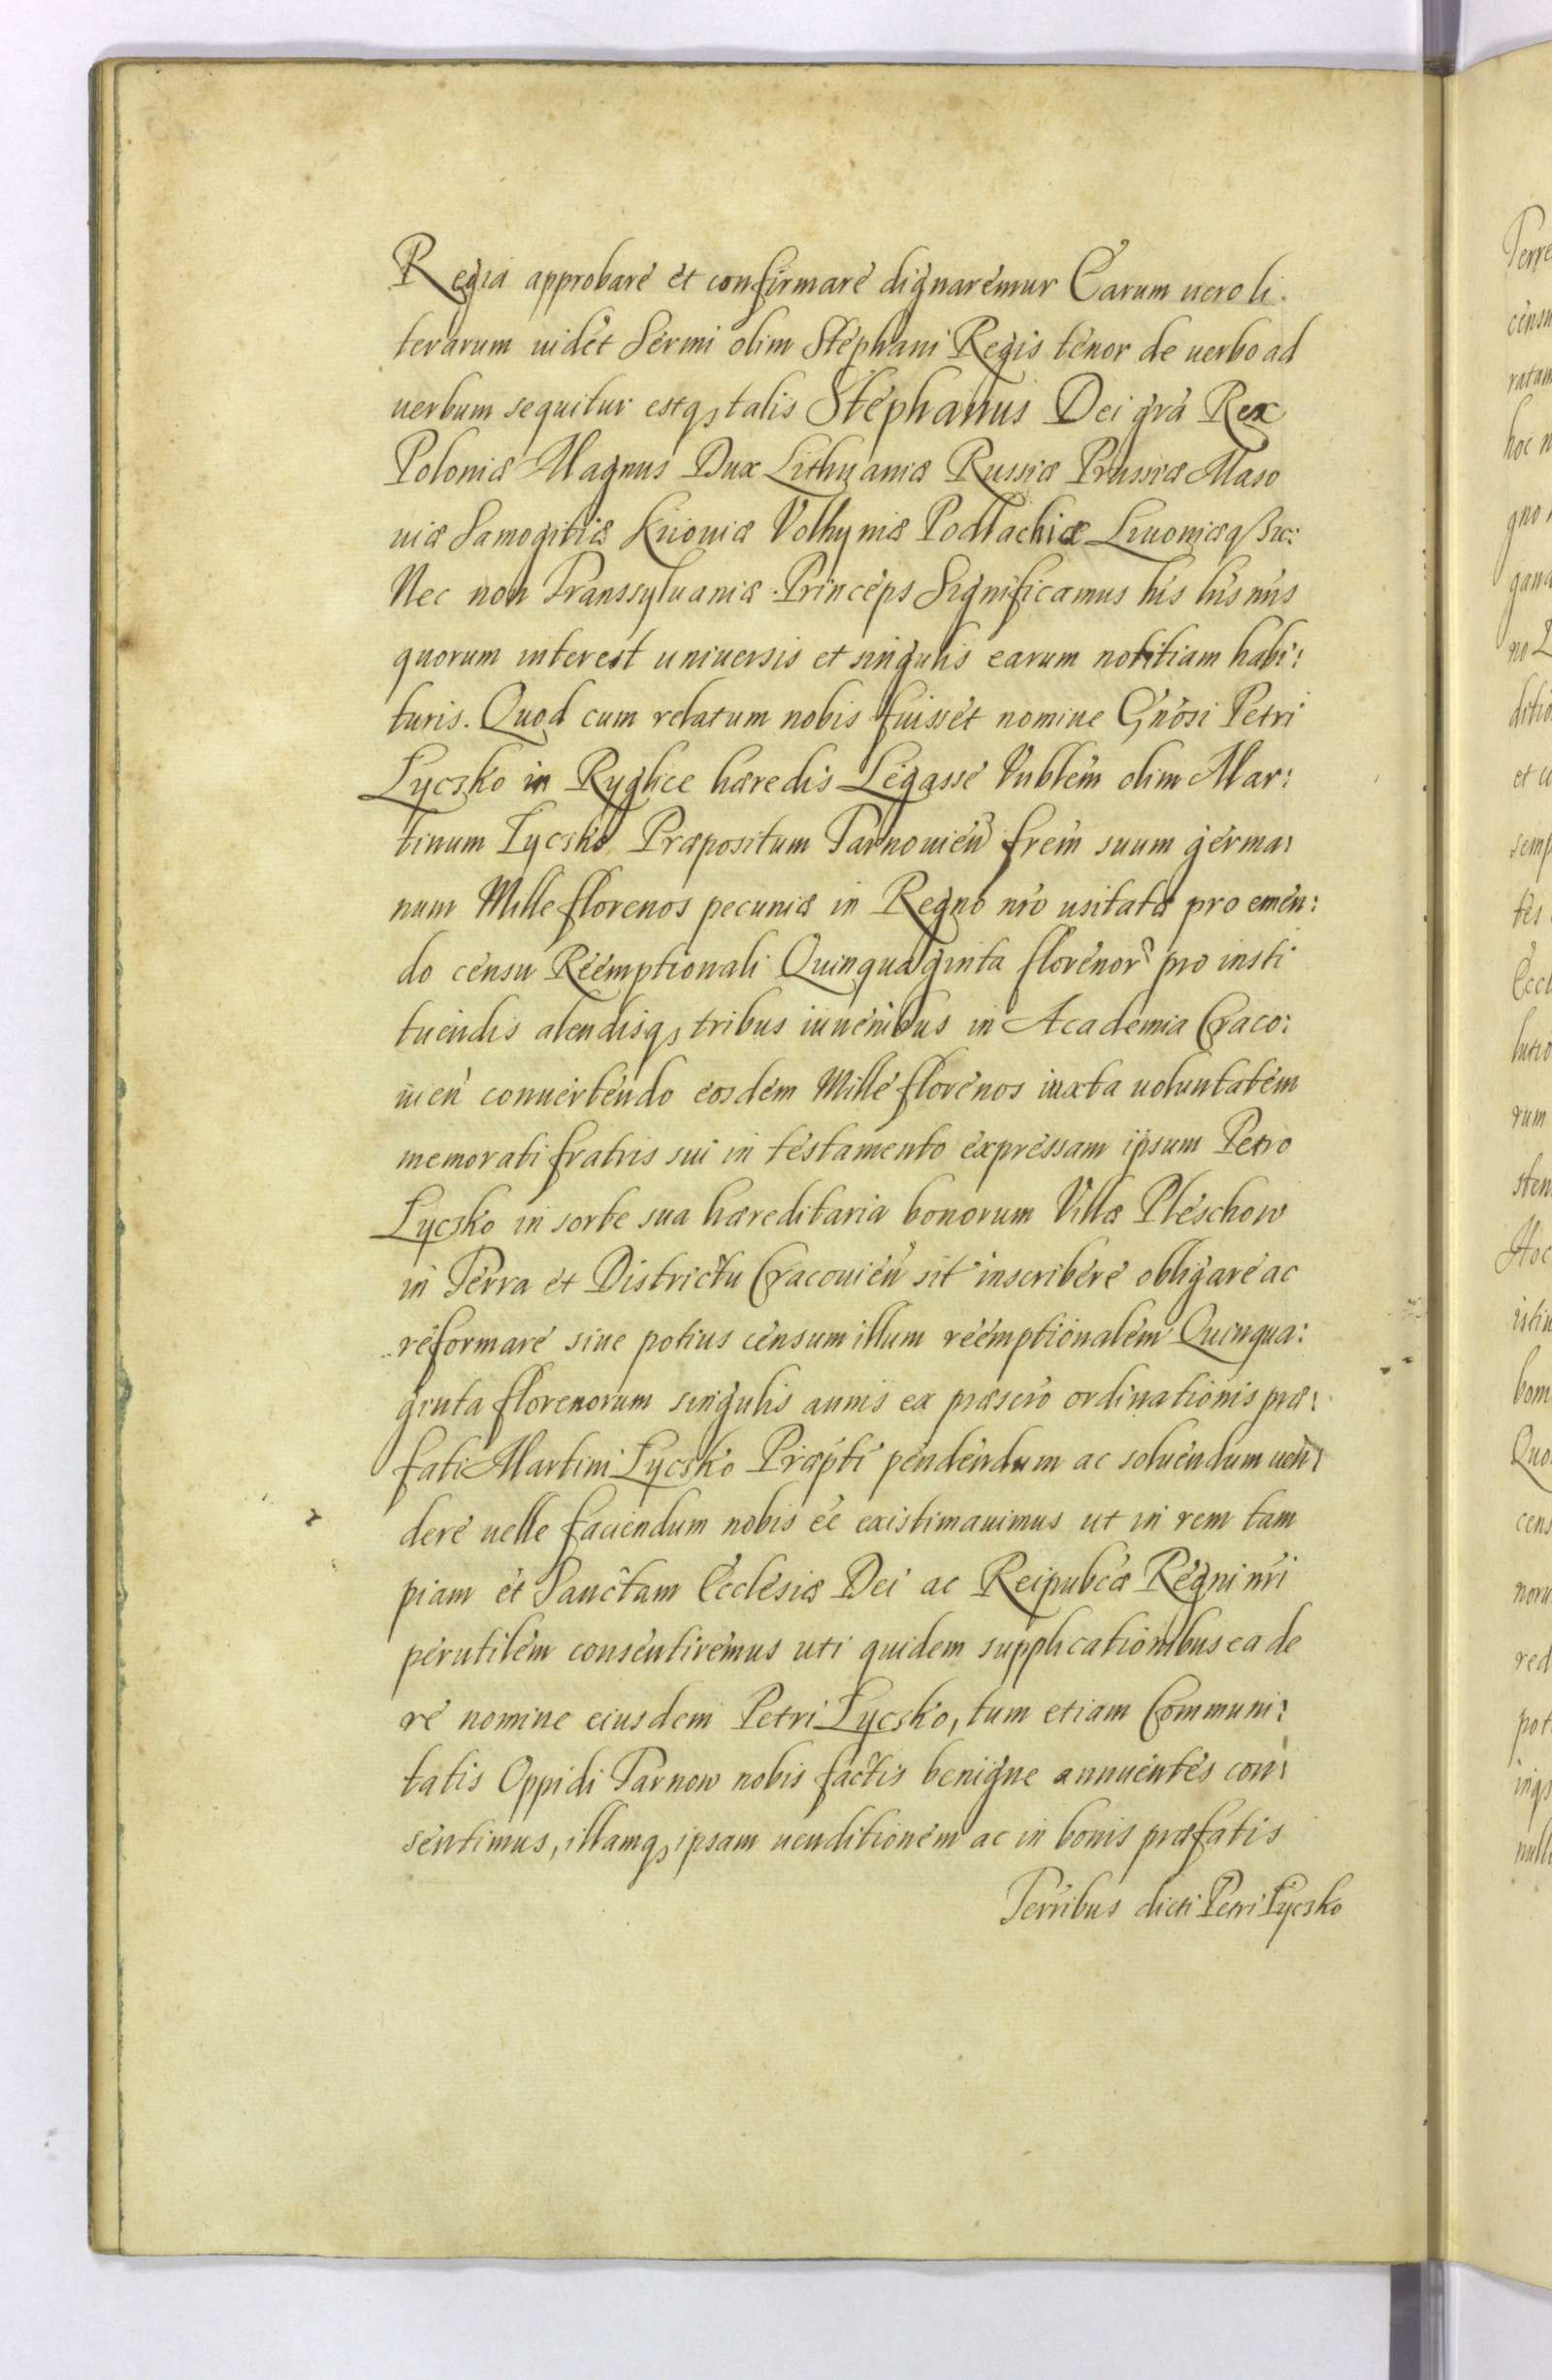 Regia approbare et confirmare dignaremur Earum uero li.
terarum uidet Sermi olim Stephani Regis tenor de uerbo ad
uerbum sequitur estq, talis Stephanus Dei gra Rex
Poloniæ Magnus Dux Lithuaniæ Russiæ Prussiæ Maso
uiæ Samogitiæ Kiiouiæ Volhyniæ Podlachiæ Liuoniæq
Nec non Transsyluaniæ Princeps Significamus his lris nris
quorum interest uniuersis et singulis earum notitiam habi:
turis. Quod cum relatum nobis fuisset nomine Gnosi Petri
Lyczko in Ryglice hæredis Legasse Vnblem olim Mar:
tinum Lyczko Præpositum Tarnouien frem suum germa:
num Mille florenos pecuniæ in Regno nro usitatæ pro emen:
do censu Reemptionali Quinquaginta florenor pro insti
tuendis alendisq, tribus iuuenibus in Academia Craco:
uien conuertendo eosdem Mille florenos iuxta uoluntatem
memorati fratris sui in testamento expressam ipsum Petro
Lyczko in sorte sua hæreditaria bonorum Villæ Pleschow
in Terra et Districtu Cracouien sit inscribere obligare ac
reformare siue potius censum illum reemptionalem Quinqua:
ginta florenorum singulis annis ex præscro ordinationis præ:
fati Martini Lycsko Præpti pendendum ac soluendum uen:
dere uelle faciendum nobis ee existimauimus ut in rem tam
piam et Sanctam Ecclesiæ Dei ac Reipubcæ Regni nri
perutilem consentiremus uti quidem supplicationibus ea de
re nomine eiusdem Petri Lycsko, tum etiam Communi:
tatis Oppidi Tarnow nobis factis benigne annuentes con:
sentimus, illamq, ipsam uenditionem ac in bonis præfatis
Terribus dicti Petri Lycsko